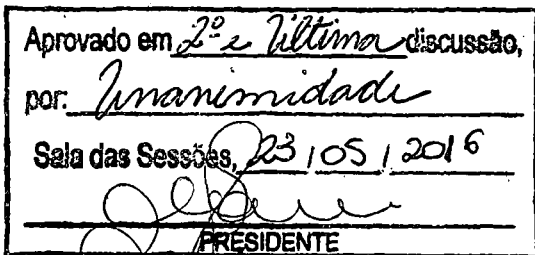 Aprovado em 2º e Última discussão,
por: Unanimidade
Sala das Sessões, 23 / 05 / 2016
PRESIDENTE